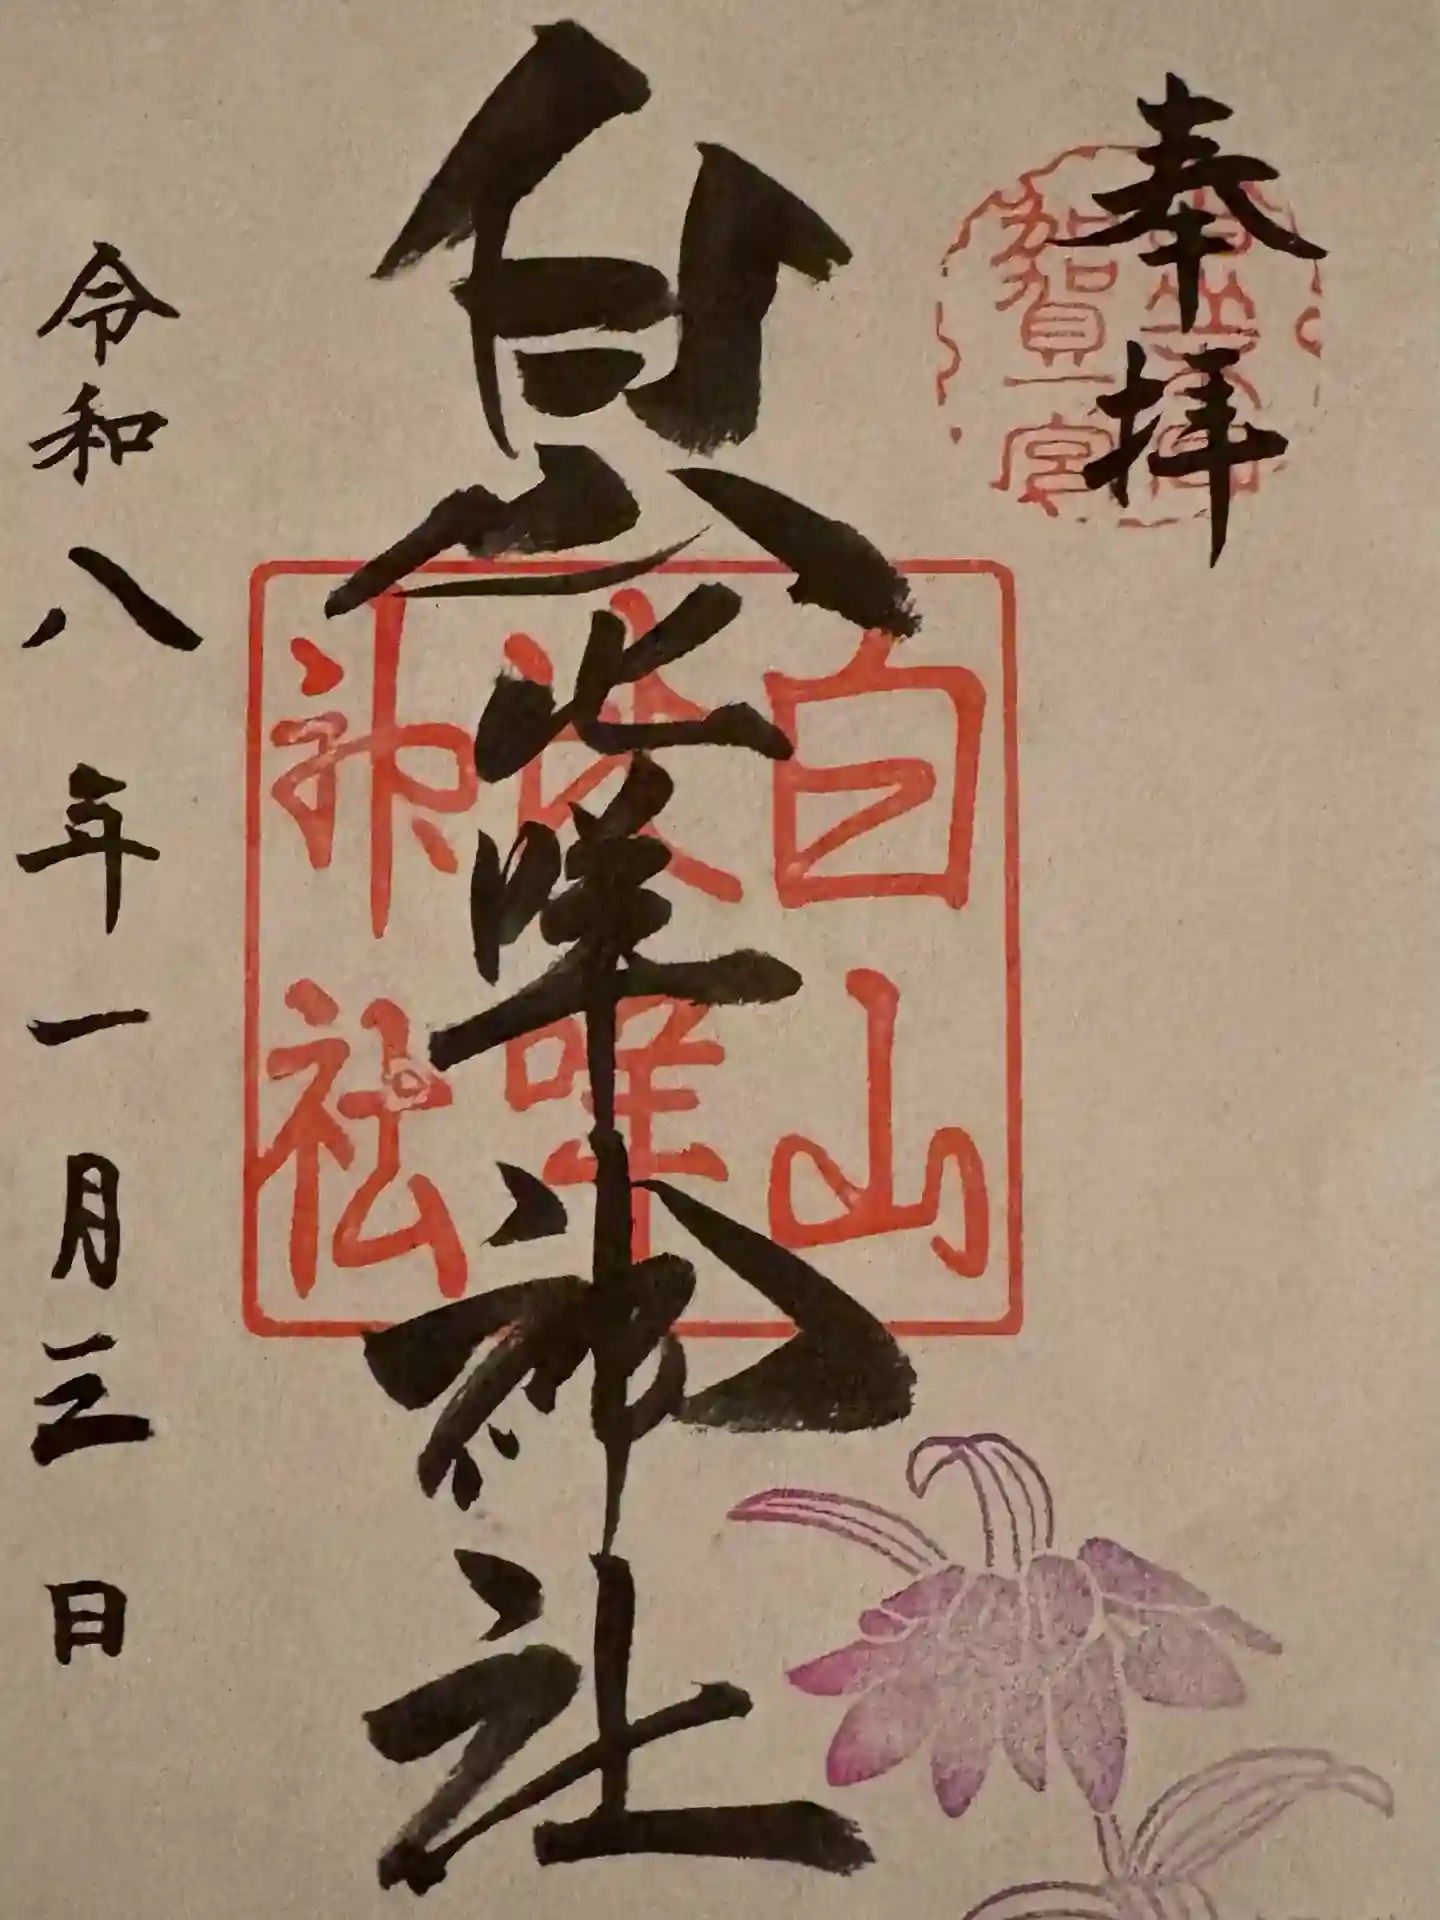 奉拝
加賀一宮
白山比咩神社
白山
咩
神社
令和八年一月三日